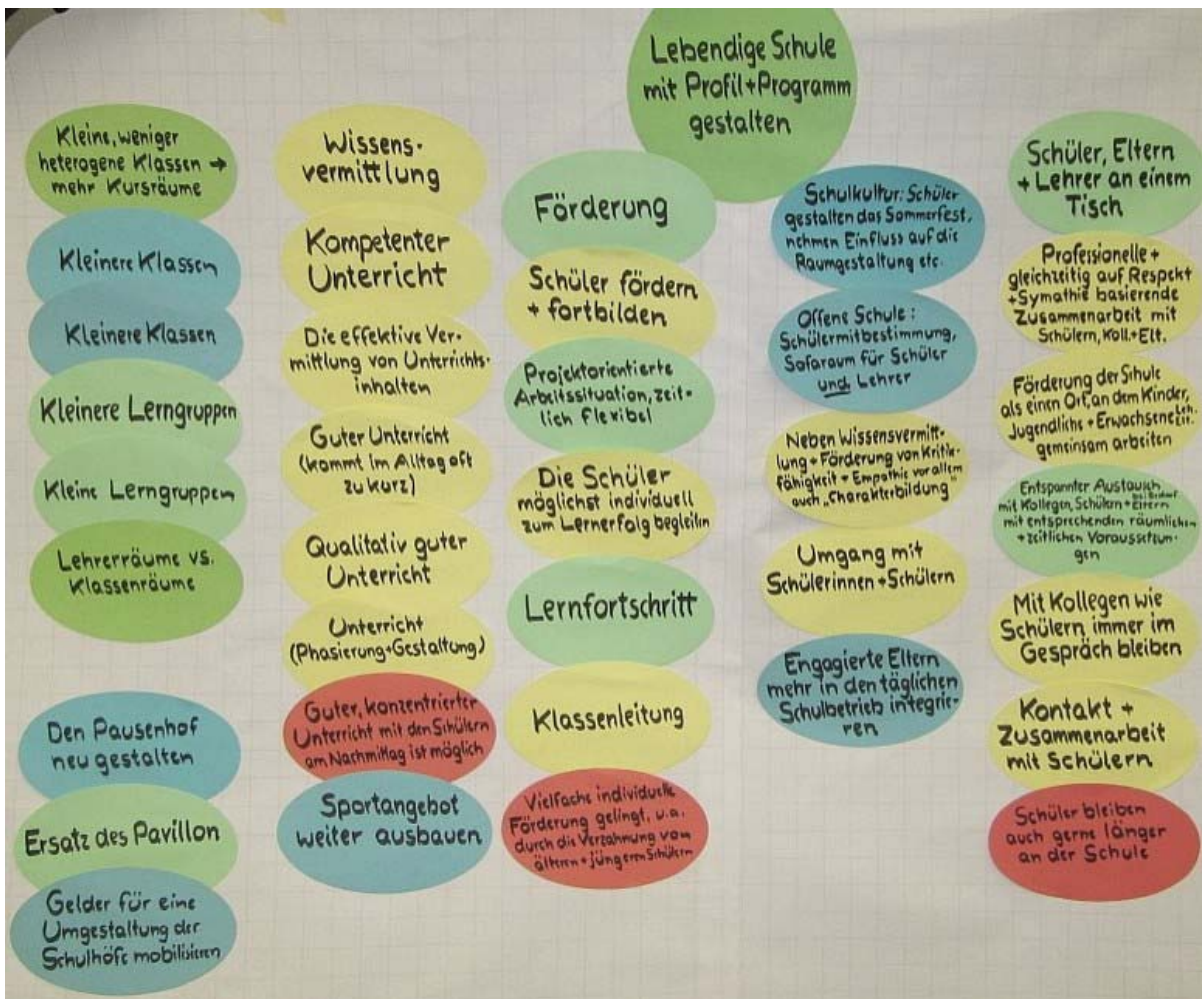 Lebendige Schule
mit Profil+Programm
gestalten
Kleine, weniger
heterogene Klassen →
mehr Kursräume
Kleinere Klassen
Kleinere Klassen
Kleinere Lerngruppen
Kleine Lerngruppen
Lehrerräume vs.
Klassenräume
Den Pausenhof
neu gestalten
Ersatz des Pavillon
Gelder für eine
Umgestaltung der
Schulhöfe mobilisieren
Wissens-
vermittlung
Kompetenter
Unterricht
Die effektive Ver-
mittlung von Unterrichts-
inhalten
Guter Unterricht
(kommt im Alltag oft
zu kurz)
Qualitativ guter
Unterricht
Unterricht
(Phasierung+Gestaltung)
Guter, konzentrierter
Unterricht mit den Schülern
am Nachmittag ist möglich
Sportangebot
weiter ausbauen
Förderung
Schüler fördern
+ fortbilden
Projektorientierte
Arbeitssituation, zeit-
lich flexibel
Die Schüler
möglichst individuell
zum Lernerfolg begleiten
Lernfortschritt
Klassenleitung
Vielfache individuelle
Förderung gelingt, u.a.
durch die Verzahnung von
älteren + jüngeren Schülern
Schulkultur: Schüler
gestalten das Sommerfest,
nehmen Einfluss auf die
Raumgestaltung etc.
Offene Schule:
Schülermitbestimmung,
Sofaraum für Schüler
und Lehrer
Neben Wissensvermitt-
lung + Förderung von Kritik-
fähigkeit + Empathie vor allem
auch „Charakterbildung"
Umgang mit
Schülerinnen + Schülern
Engagierte Eltern
mehr in den täglichen
Schulbetrieb integrie-
ren
Schüler, Eltern
+ Lehrer an einem
Tisch
Professionelle +
gleichzeitig auf Respekt
+ Symathie basierende
Zusammenarbeit mit
Schülern, Koll. + Elt.
Förderung der Schule
als einen Ort, an dem Kinder,
Jugendliche + Erwachsene
gemeinsam arbeiten
Entspannter Austausch
mit Kollegen, Schülern + Eltern
mit entsprechenden räumlichen
+ zeitlichen Voraussetzun-
gen
Mit Kollegen wie
Schülern immer im
Gespräch bleiben
Kontakt +
Zusammenarbeit
mit Schülern
Schüler bleiben
auch gerne länger
an der Schule